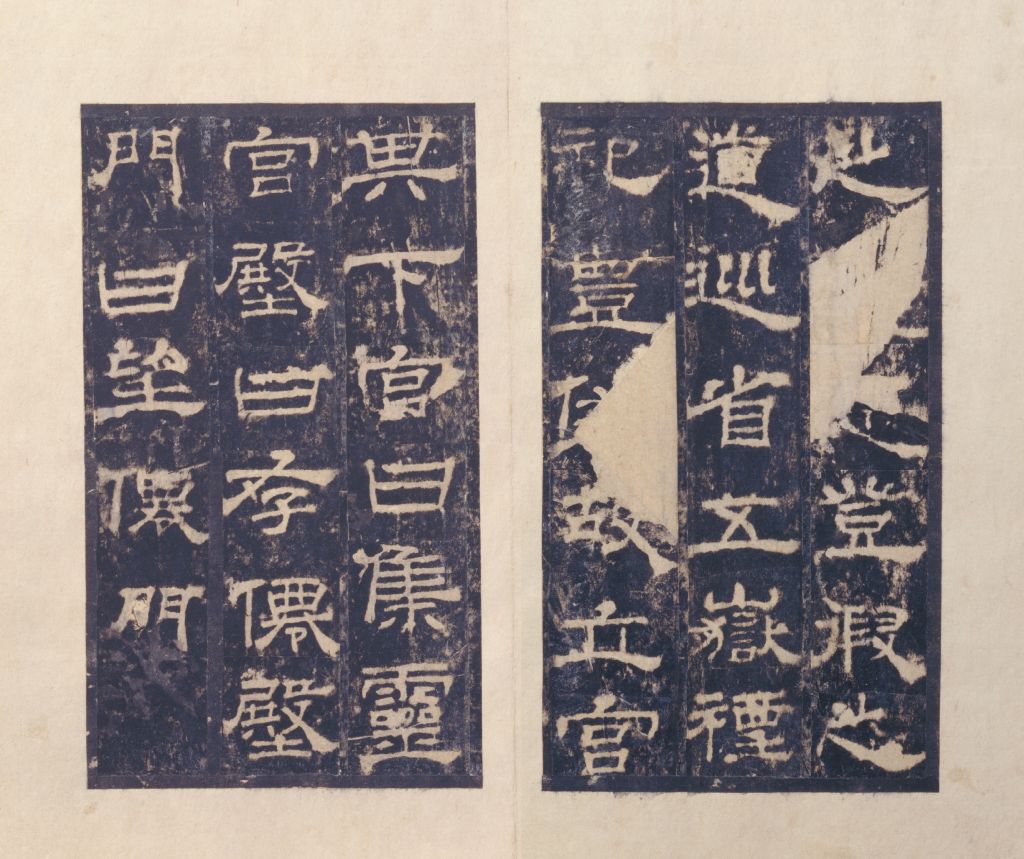 之登假之
道巡省五嶽禋
祀豐備故立宮
其下宮曰集靈
宮殿曰存僊殿
門曰望僊門